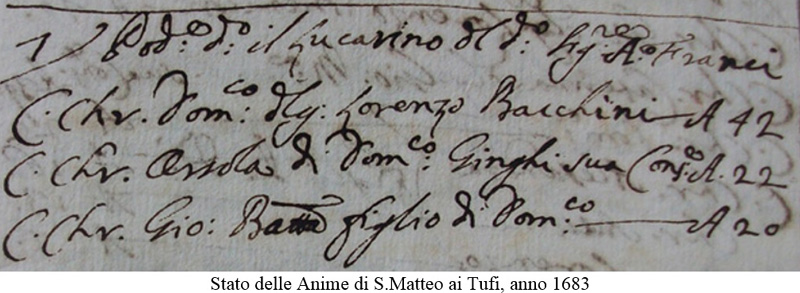 1 Pod.e d.o il Lucarino del d.o Sg.re A.o Franci
C. Chr. Dom.co dlg: Lorenzo Bacchini A 42
C. Chr. Orsola di Dom.co Ginghi sua Cons.e A. 22
C. Chr. Gio: Batta figlio di Dom:co A 20
Stato delle Anime di S.Matteo ai Tufi, anno 1683